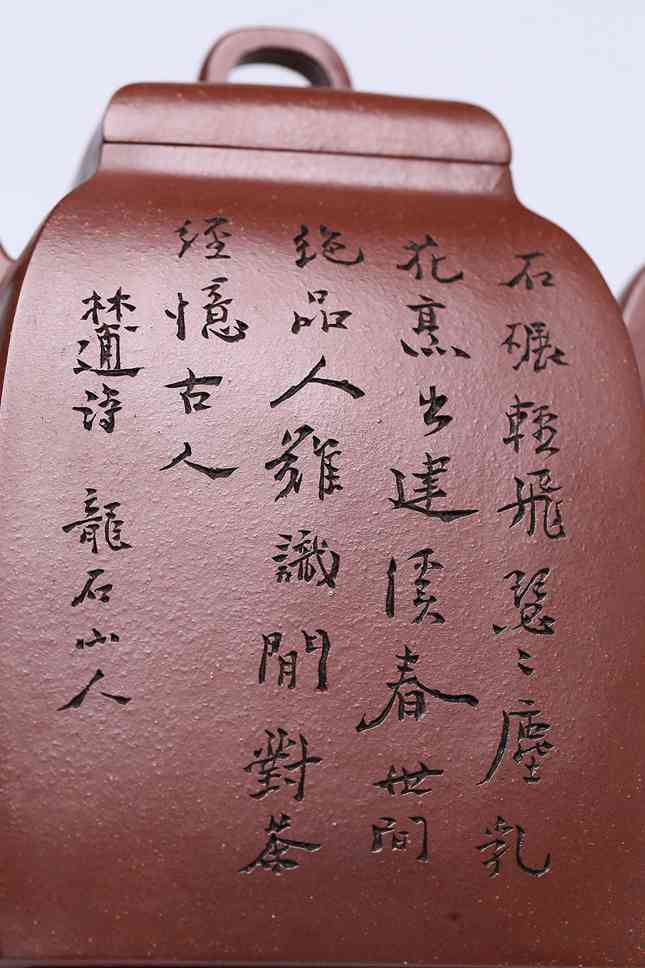 石碾輕飛瑟〻塵乳
花烹出建溪春世間
絕品人難識閒對茶
經憶古人
林逋詩 龍石山人